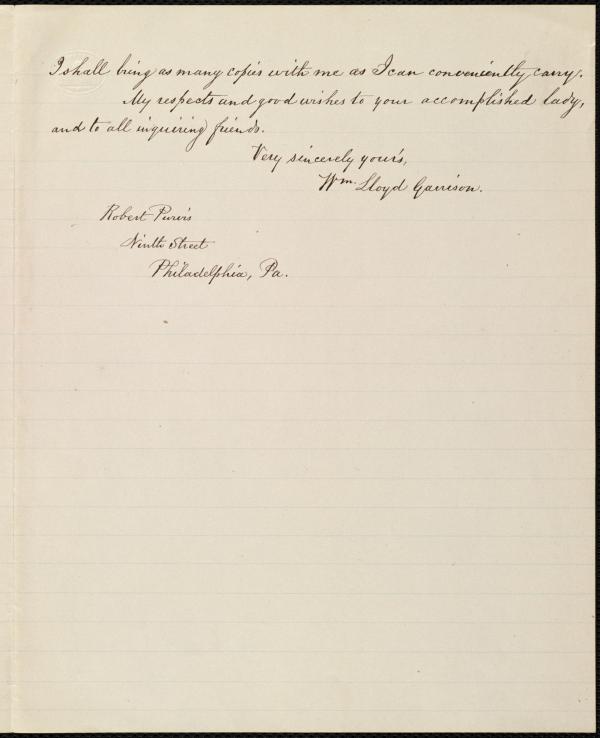 I shall bring as many copies with me as I can conveniently carry.
My respects and good wishes to your accomplished lady,
and to all inquiring friends.
Very sincerely yours,
Wm. Lloyd Garrison.
Robert Purvis
Ninth Street
Philadelphia, Pa.